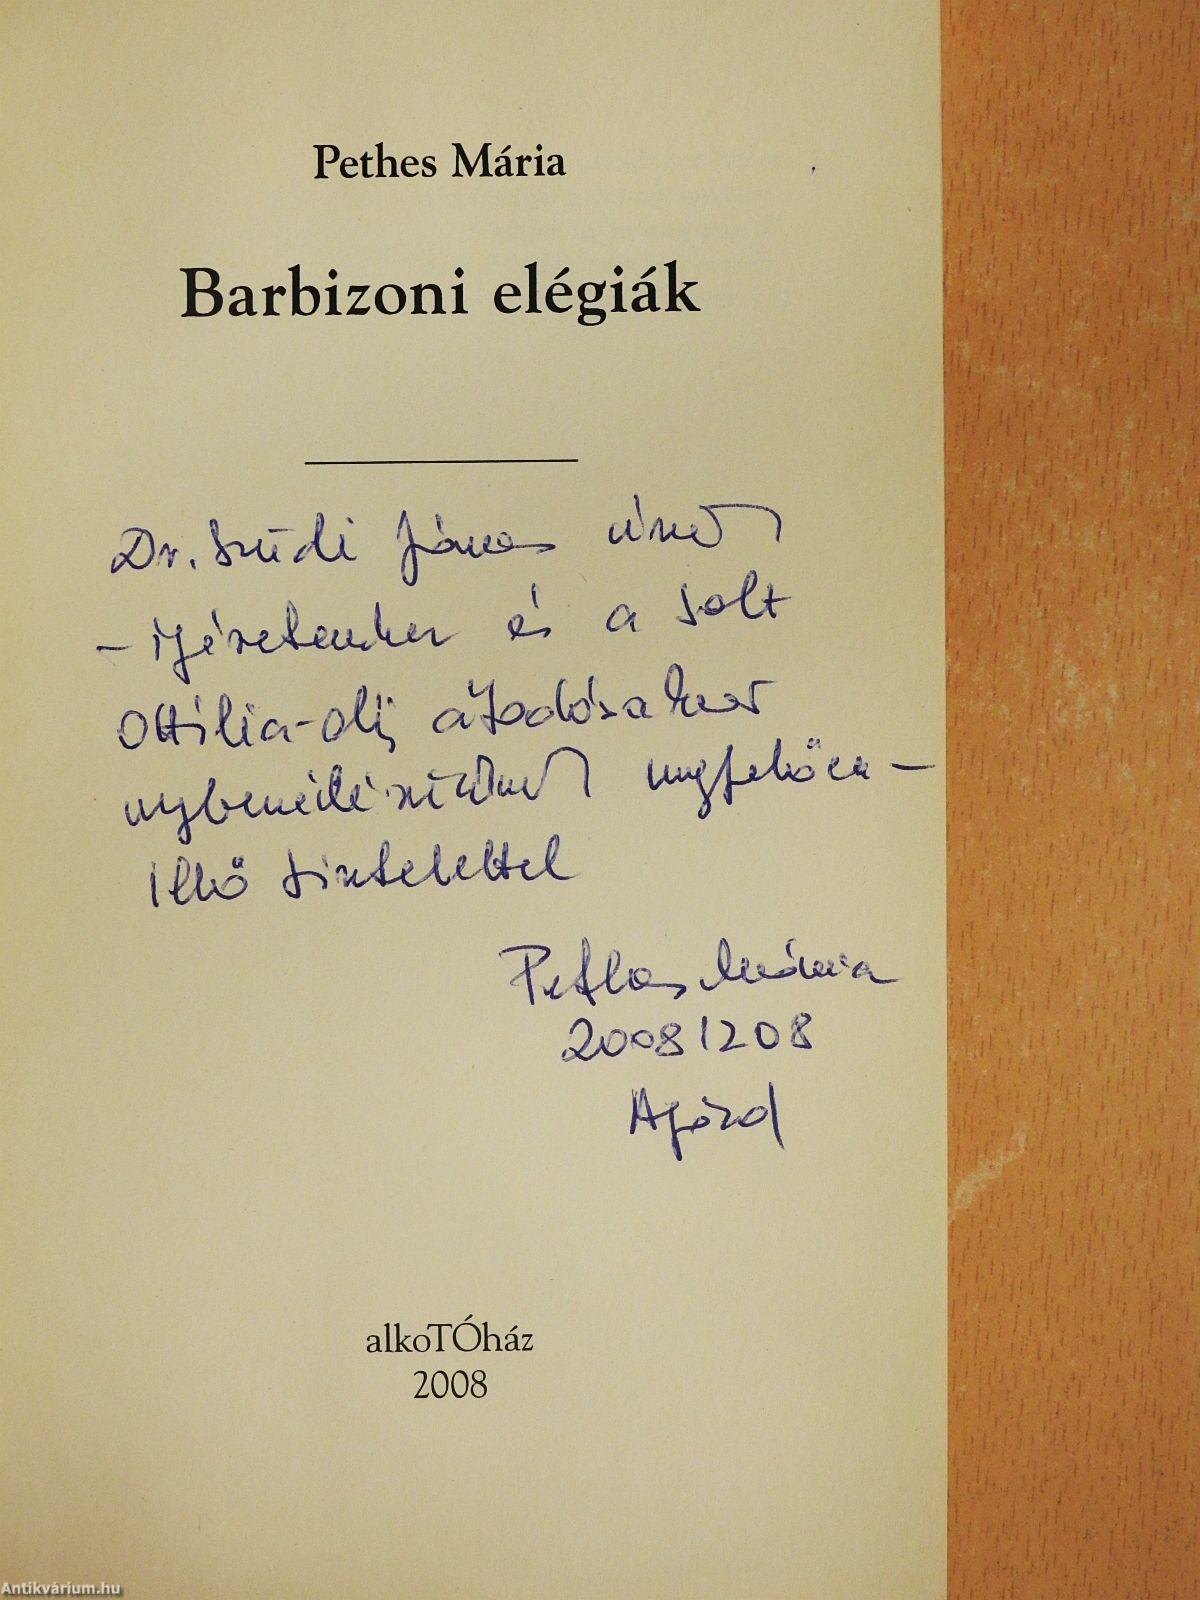 Pethes Mária
Barbizoni elégiák
Dr. Szüdi János úrnak
– ígéretemhez és a Solt
Ottilia-díj átadásakor
megfelően –
illő tisztelettel
Pethes Mária
20081208
Agárd
alkoTÓház
2008
Antikvárium.hu